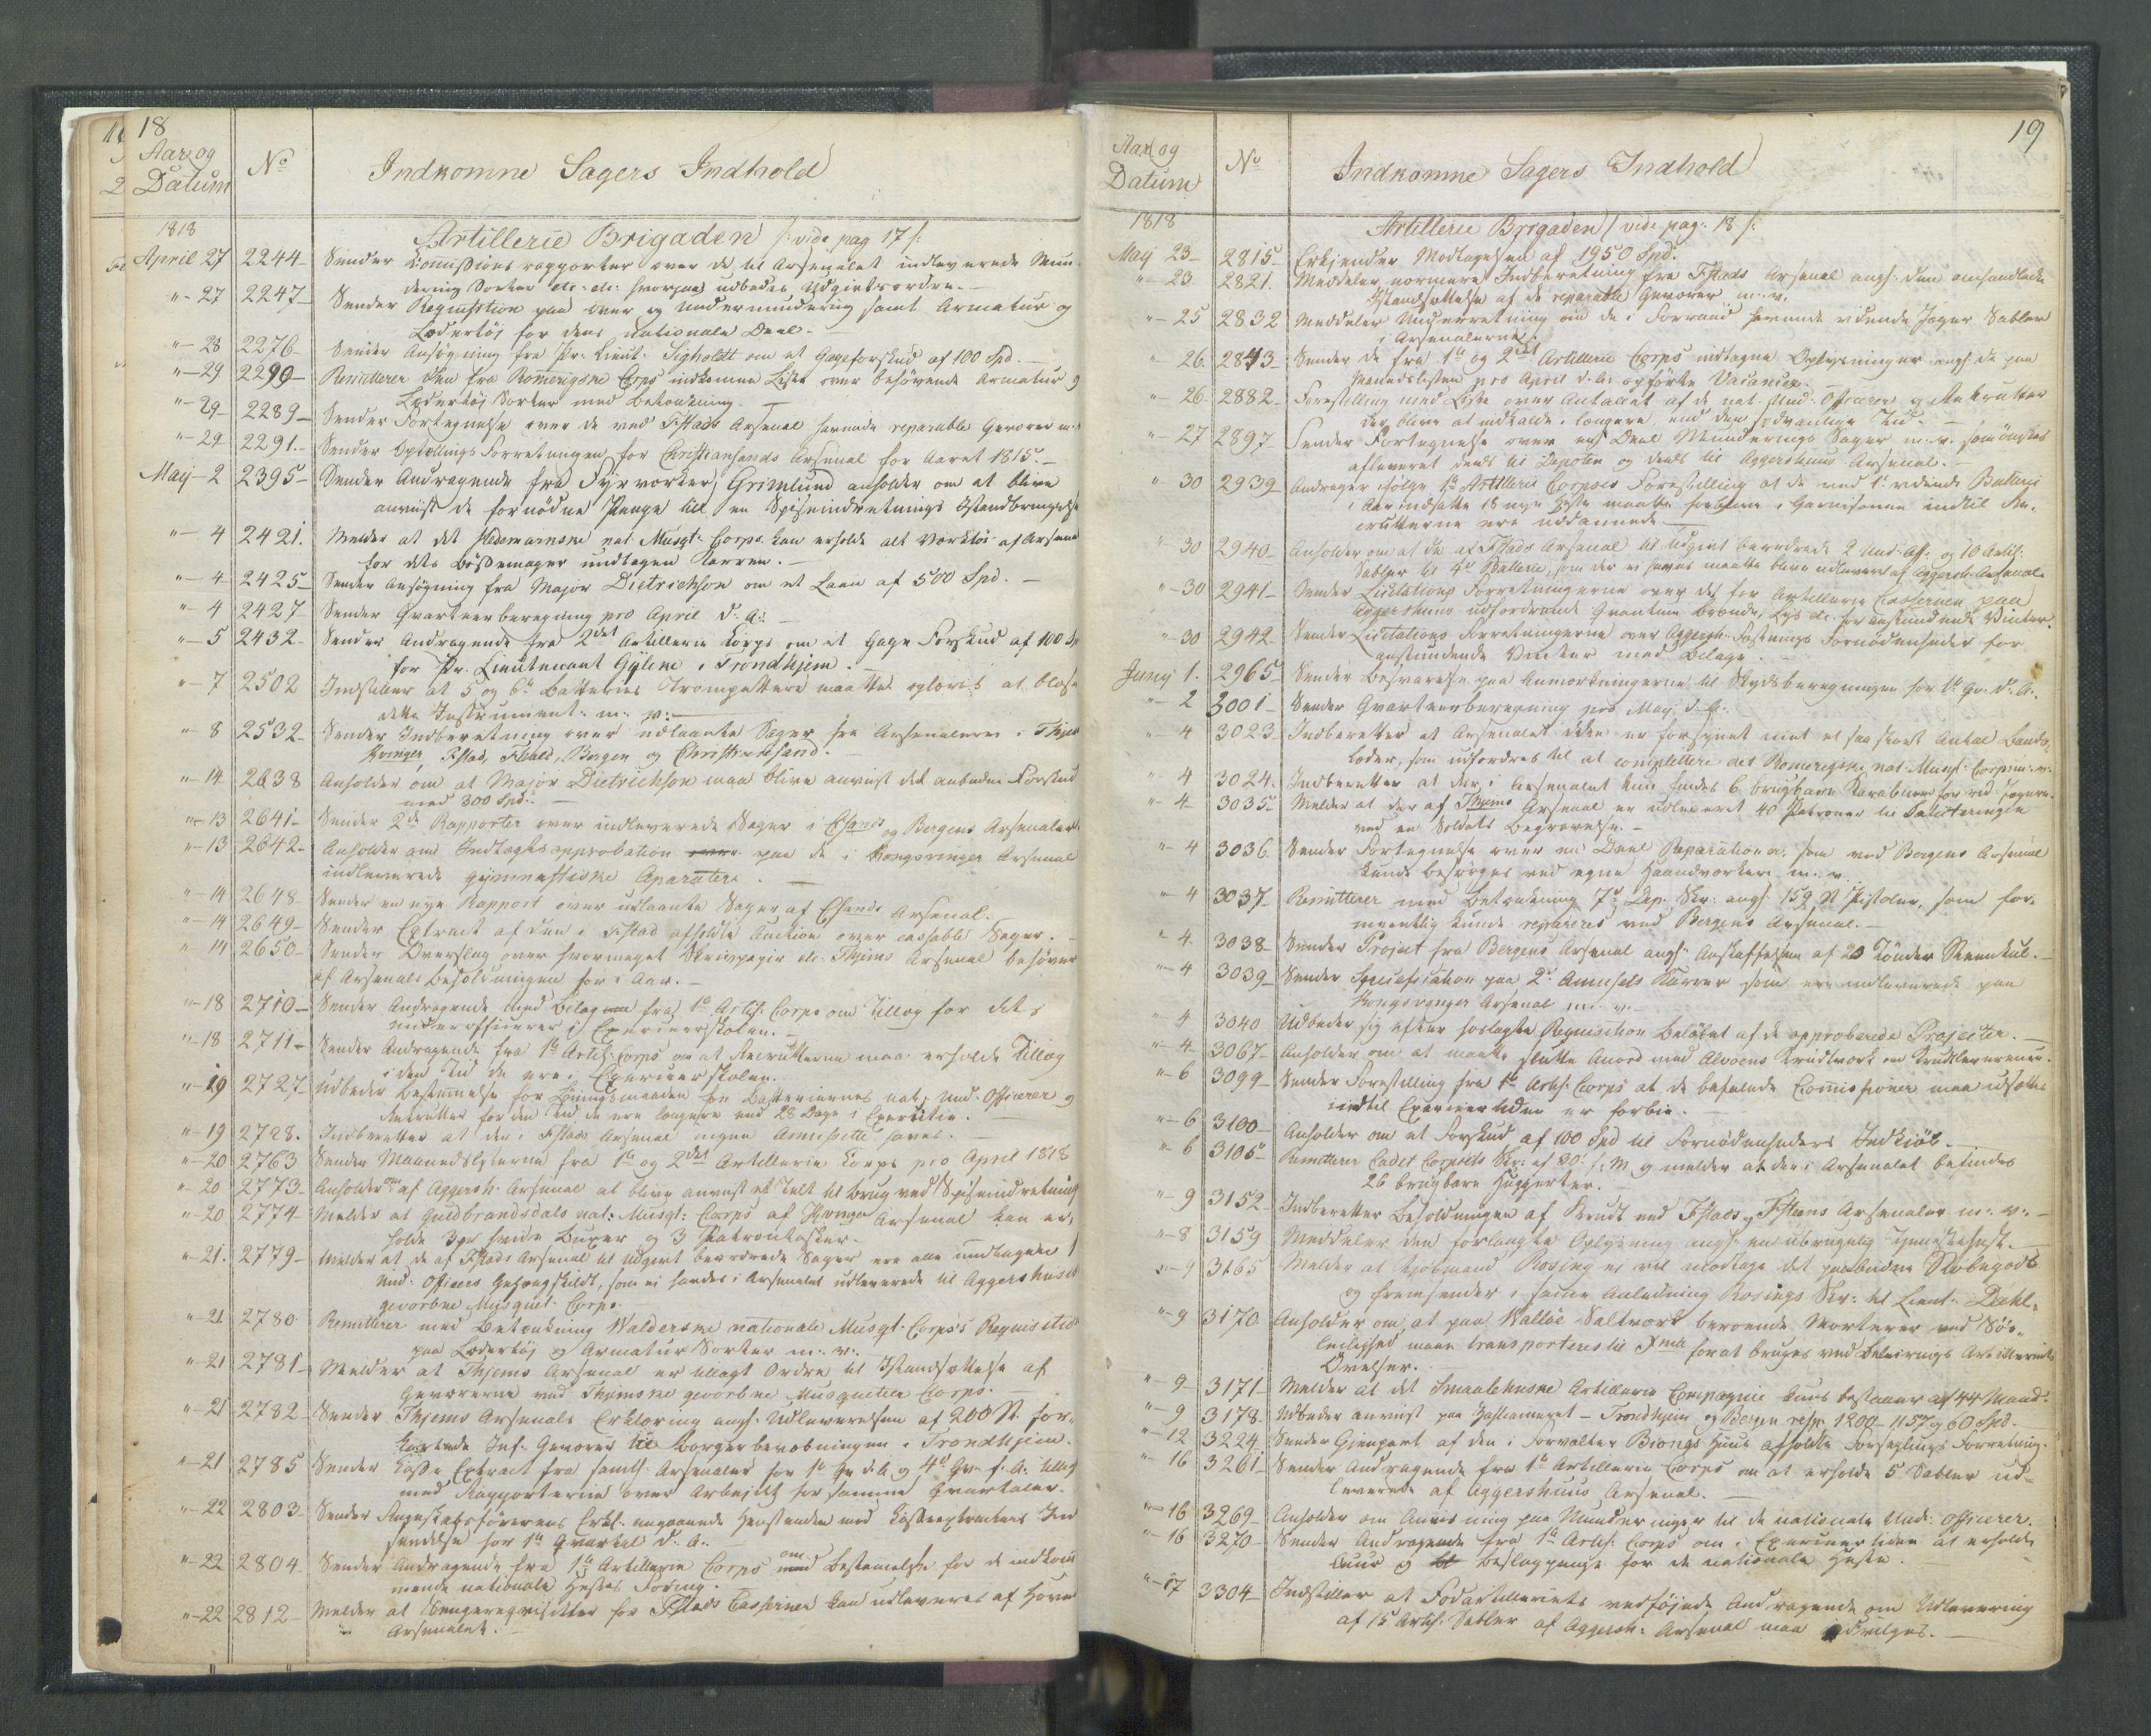 18
Aar og
Datum
No
Indkomne Sagers Indhold
1818
Artillerie Brigaden /: vide pag 17 :/
April 27 2244 Sender Commissions rapporter over de til Arsenalet indleverede Mun-
dering Sorter etc. etc. hvorpaa udbedes Udgivtsordre.
"- 27 2247 Sender Requisition paa over og Undermundering samt Armatur og
Lædertøj for dens nationale Deel.
"- 28 2276 Sender Ansøgning fra Pr. Lieut. Sigholdt om et Gageforskud af 100 Spd.
"- 29 2290 Remitterer den fra Romerigske Corps indkomne Liste over behøvende Armatur og
Lædertøj Sorter med Betænkning.
"- 29 2289 Sender Fortegnelse over de ved Fstads Arsenal havende reparable Geværer m.v.
"- 29 2291 Sender Optællings Forretningen for Christiansands Arsenal for Aaret 1815.
Maij 2 2395 Sender Andragende fra Fyrværker Grimlund anholder om at blive
anviist de fornødne Penge till en Spiseindretnings Istandbringelse
"- 4 2421 Melder at det Hedemarkske nat. Musqt. Corps kan erholde alt Værktøi af Arsenal
for dets Bøssemager undtagen Karren.
"- 4 2425 Sender Ansøgning fra Major Dietrichson om et Laan af 500 Spd.
"- 4 2427 Sender Qvarteerberegning pro April d. A.
"- 5 2432 Sender Andragende fra 2det Artillerie Corps om et Gage Forskud af 100 Sp
for Pr. Lieutenant Gÿlche i Trondhjem.
"- 7 2502 Indstiller at 5 og 6te Batteries Trompettere maatte oplæres at blæse
dette Instrument m. v.
"- 8 2532 Sender Indberetning over udlaante Sager fra Arsenalerne i Thjem
Kvinger, Fstad, Fhald, Bergen og Christiansand.
"- 14 2638 Anholder om at Major Dietrichson maa blive anviist det anbudne Forskud
med 300 Spd.
"- 13 2641 Sender 2de Rapporter over indleverede Sager i Chsands og Bergens Arsenaler
"- 13 2642 Anholder om Indtægts approbation paa de i Kongsvinger Arsenal
indleverede gymnastiske Aparater.
"- 14 2648 Sender en nye Rapport over udlaante Sager af Chsands Arsenal.
"- 14 2649 Sender Extract af den i Fstad afholdte Auction over cassable Sager.
"- 14 2650 Sender Overslag over hvormeget Skrivpapir etc. Thjems Arsenal behøver
af Arsenals Beholdningen for i Aar.
"- 18 2710 Sender Andragende med Bilag fra 1te Artil. Corps om Tillæg for dets
underofficierer i Exerceerskolen.
"- 18 2711 Sender Andragende fra 1te Artil. Corps om at Recrutterne maa erholde Tillæg
i den Tid de ere i Exerceerskolen.
"- 19 2727 Udbeder Bestemmelse for Lønningsmaaden for Batteriernes nat. Und. Officerer og
Recrutter for den Tid de ere længere end 28 Dage i Exercitie.
"- 19 2728 Indberetter at der i Fstads Arsenal ingen Amusette haves.
"- 20 2763 Sender Maanedslisterne fra 1te og 2det Artillerie Corps pro April 1818
"- 20 2773 Anholder om af Aggersh. Arsenal at blive anviist et Telt til Brug ved Spiseindretning
"- 20 2774 Melder at Guldbrandsdals nat. Musqt. Corps af Kvinger Arsenal kan er-
holde 3 pr hvide Buxer og 3 Patrontasker.
"- 21 2779 Melder at de af Fstads Arsenal til Udgivt beordrede Sager ere alle undtagen 1
Und. Officers Gehængskildt, som ei havdes i Arsenalet udleverede til Aggershusiske
gevorbne Musquet. Corps.
"- 21 2780 Remitterer med Betænkning Walderske nationale Musqt. Corps's Requisition
paa Lædertøj og Armatur Sorter m. v.
"- 21 2781 Melder at Thjems Arsenal er tillagt Ordre til Istandsættelse af
Geværerne ved Thjemske gevorbne Musqueteer Corps.
"- 21 2782 Sender Thjems Arsenals Erklæring angd. Udleverelsen af 200 St. for-
kortede Inf. Geværer til Borgerbevæbningen i Trondhjem.
"- 21 2785 Sender Kasse Extract fra samtl. Arsenaler for 1te Qv. d. A. og 4de Qv. f. A. tillige
med Rapporterne over Arbejdet for samme Qvartaler.
"- 22 2803 Sender Regnskabsførerens Erkl. angaaende Henstanden med Kasseextractens Ind
sendelse for 1te Qvartal d. A.
"- 22 2804 Sender Andragende fra 1te Artillerie Corps om Bestemmelse for de indkom
mende nationale Hestes Foring.
"- 22 2812 Melder at Sengereqvisitter for Fstads Casserne kan udleveres af Hoved
Arsenalet.
19
Aar og
Datum
No
Indkomne Sagers Indhold
1818
Artillerie Brigaden /: vide pag. 18 :/
Maij 23 2815 Erkjender Modtagelsen af 1950 Spd.
"- 23 2821 Meddeler nærmere Indberetning fra Fstads Arsenal angd. den omhandlede
Istandsættelse af de reparable Geværer m. v.
"- 25 2832 Meddeler Underretning om de i Forraad havende ridende Jæger Sabler
i Arsenalerne.
"- 26 2843 Sender de fra 1te og 2det Artillerie Corps indtagne Oplysninger angd. de paa
Maanedslisten pro April d. A. opførte Vacancer.
"- 26 2882 Forestilling med Liste over Antallet af de nat. Und. Officerer og Rekrutter
der blive at indkalde i længere end den sædvanlige Tid.
"- 27 2897 Sender Fortegnelse over en Deel Munderings Sager m. v. som ønskes
afleveret deels til Depoten og deels til Aggershuus Arsenal.
"- 30 2939 Andrager ifølge 1te Artillerie Corpses Forestilling at de ved 1te ridende Batterie
i Aar indsatte 18 nye Heste maatte forblive i Garnisonen indtil Re-
crutterne ere uddannede.
"- 30 2940 Anholder om at de af Fstads Arsenal til Udgivt beordrede 2 Und. Off. og 10 Artil.
Sabler til 4de Batterie, som der ei haves maatte blive udleveret af Aggersh. Arsenal.
"- 30 2941 Sender Licitations Forretningerne over det for Artillerie Cassernen paa
Aggershuus udfordrende Qvantum Brænde, Lys etc. for anstundende Vinter.
"- 30 2942 Sender Licitations Forretningerne over Aggersh. Fæstnings Fornødenheder for
anstundende Vinter med Bilage.
Junij 1. 2965 Sender Besvarelse paa Anmærkningerne til Skydsberegningen for 1te Qv. d. A.
"- 2 3001 Sender Qvarteerberegning pro Maij d. A.
"- 4 3023 Indberetter at Arsenalet ikke er forsynet med et saa stort Antal Bando-
lerer, som udfordres til at complettere det Romerigske nat. Musqt. Corps m. v.
"- 4 3024 Indberetter at der i Arsenalet kun findes 6 brugbare Karabiner for rid. Jægere.
"- 4 3035 Melder at der af Thjems Arsenal er udleveret 40 Patroner til Saluteringen
ved en Soldats Begravelse.
"- 4 3036 Sender Fortegnelse over en Deel Reparationer, som ved Bergens Arsenal
kunde besørges ved egne Haandværkere m. v.
"- 4 3037 Remitterer med Betænkning 7de Dep. Skr. angd. 159 St Pistoler, som for-
mentlig kunde repareres ved Bergens Arsenal.
"- 4 3038 Sender Project fra Bergens Arsenal angd. Anskaffelsen af 20 Tønder Steenkul.
"- 4 3039 Sender Specification paa 2de Amusets Karrer som ere indleverede paa
Kongsvinger Arsenal m. v.
"- 4 3040 Udbeder sig efter foslagte Requisition Beløbet af de approberede Projecter.
"- 4 3067 Anholder om at maatte slutte Accord med Alvøens Krudtværk om Krudtleverencer.
"- 6 3099 Sender Forestilling fra 1te Artil. Corps at de befalede Commissioner maa udsættes
indtil Exerceertiden er forbie.
"- 6 3100 Anholder om et Forskud af 100 Spd til Fornødenheders Indkiøb.
"- 6 3105 Remitterer Cadet Corpsets Skr. af 30. f. M. og melder at der i Arsenalet befindes
26 brugbare Huggerter.
"- 9 3152 Indberetter Beholdningen af Krudt ved Fstads og Fsteens Arsenaler m. v.
"- 8 3159 Meddeler den forlangte Oplysning angd. en ubrugelig Tjenestehest.
"- 9 3165 Melder at Kjøbmand Rosing ei vil modtage det paabudne Støbegods
og fremsender i samme Anledning Rosings Skr. til Lieut. Dahl.
"- 9 3170 Anholder om, at paa Walløe Saltværk beroende Morterer ved Søe-
leilighed maae transporteres til Xnia for at bruges ved Beleirings Artilleriets
Øvelser.
"- 9 3171 Melder at det Smaalehnske Artillerie Compagnie kuns bestaaer af 44 Mand.
"- 9 3178 Udbeder anviist paa Zahlcameret - Trondhjem og Bergen resp. 1200 - 115 og 60 Spd.
"- 12 3224 Sender Gjenpart af den i Forvalter Biongs Huus afholdte Forseglings Forretning.
"- 16 3261 Sender Andragende fra 1te Artillerie Corps om at erholde 5 Sabler ud-
leverede af Aggershuus Arsenal.
"- 16 3269 Anholder om Anvisning paa Munderinger til de nationale Und. Officerer.
"- 16 3270 Sender Andragende fra 1te Artil. Corps om i Exerceertiden at erholde
Cuur og Beslagpenge for de nationale Heste.
"- 17 3304 Indstiller at Fodartilleriets vedføjede Andragende om Udlevering
af 15 Artil. Sabler af Aggersh. Arsenal maa bevilges.